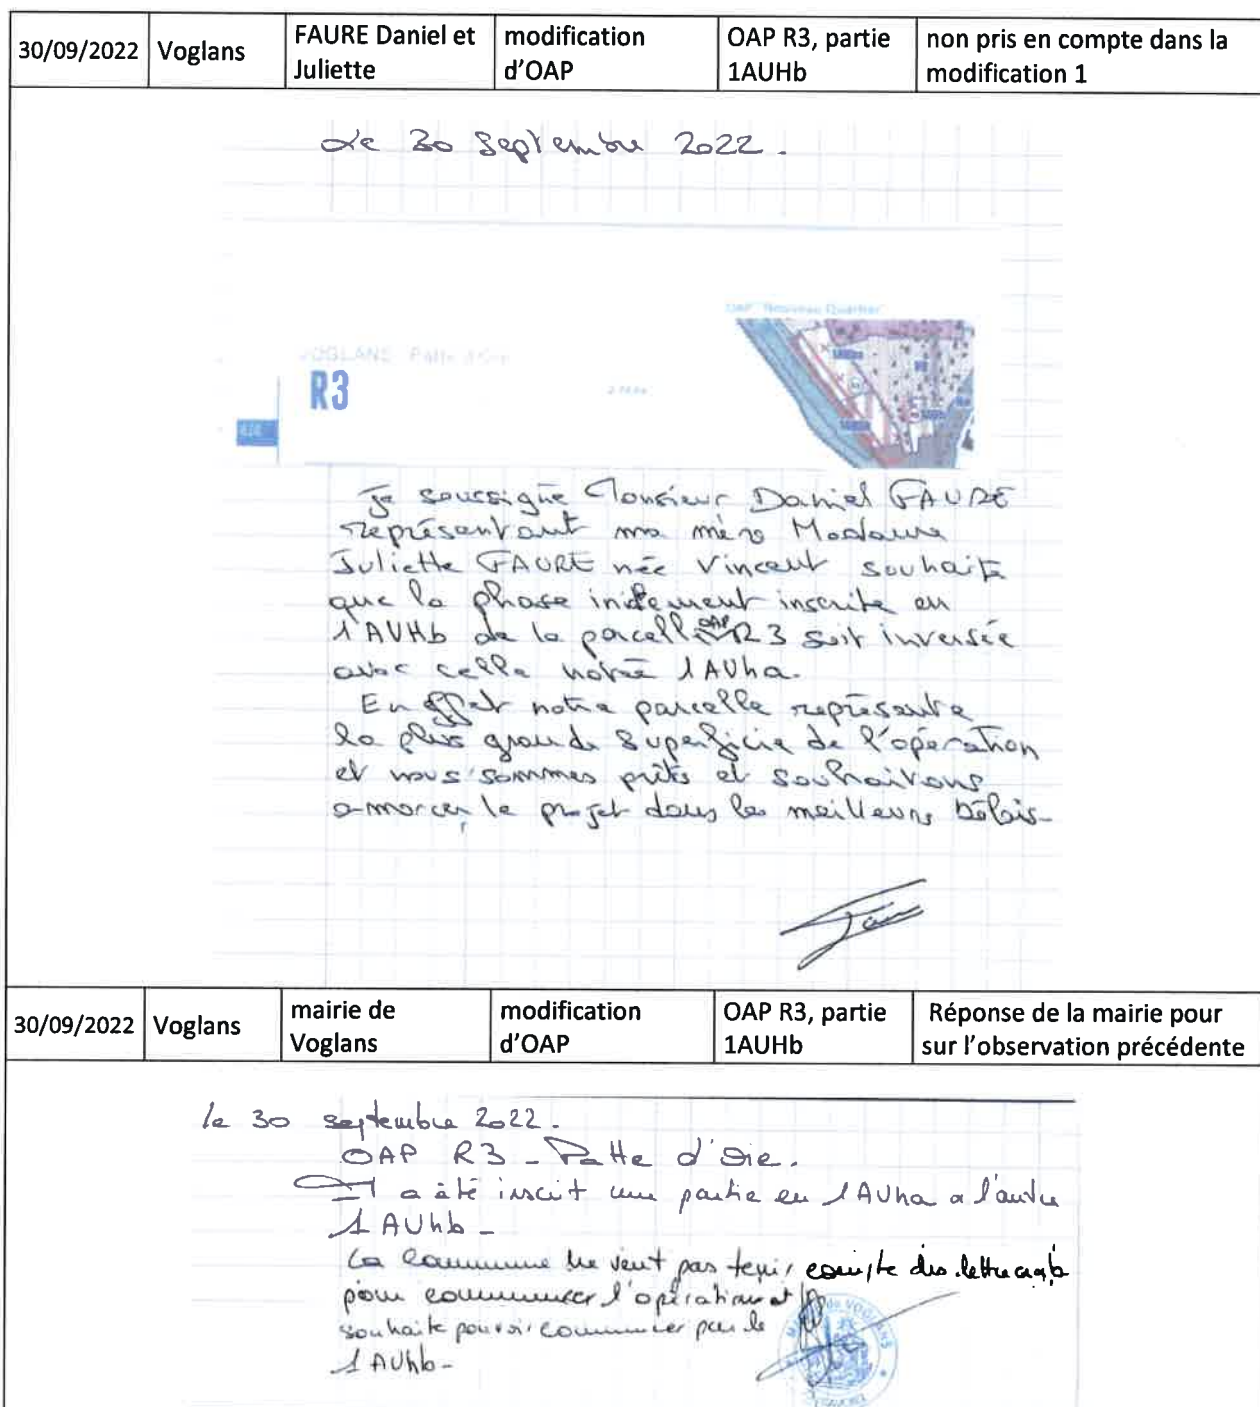 30/09/2022 Voglans FAURE Daniel et Juliette modification d'OAP OAP R3, partie 1AUHb non pris en compte dans la modification 1
Le 30 Septembre 2022.
OAP "Nouveau Quartier"
VOGLANS - Patte d'Oie
R3
Je soussigné Monsieur Daniel FAURE
représentant ma mère Madame
Juliette FAURE née Vincent souhaite
que la phase initement inscrite en
1AUHb de la parcelle OAP R3 soit inversée
avec celle notée 1AUha.
En effet notre parcelle représente
la plus grande superficie de l'opération
et nous sommes prêts et souhaitons
amorcer le projet dans les meilleurs Délais-
30/09/2022 Voglans mairie de Voglans modification d'OAP OAP R3, partie 1AUHb Réponse de la mairie pour sur l'observation précédente
le 30 septembre 2022.
OAP R3 - Patte d'Oie.
Il a été inscrit une partie en 1AUha a l'autre
1AUhb -
La Commune ne veut pas tenir compte des lettre a ou b
pour commencer l'opération et
souhaite pouvoir commencer par le
1AUhb -
VOGLANS